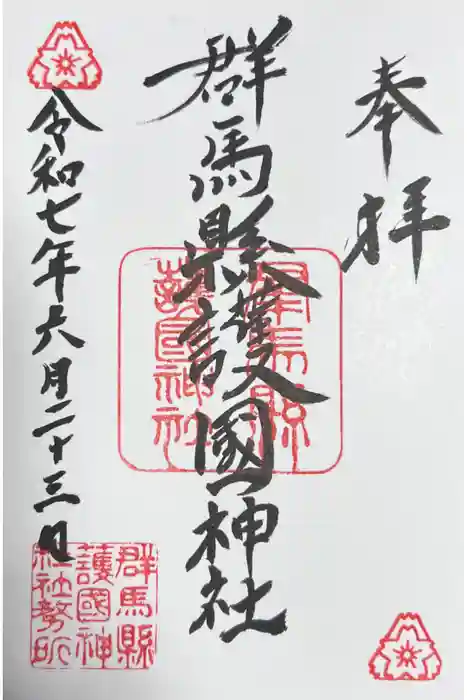 奉拝
群馬縣護國神社
令和七年六月二十三日
群馬縣
護國神社
群馬縣
護國神
社社務所